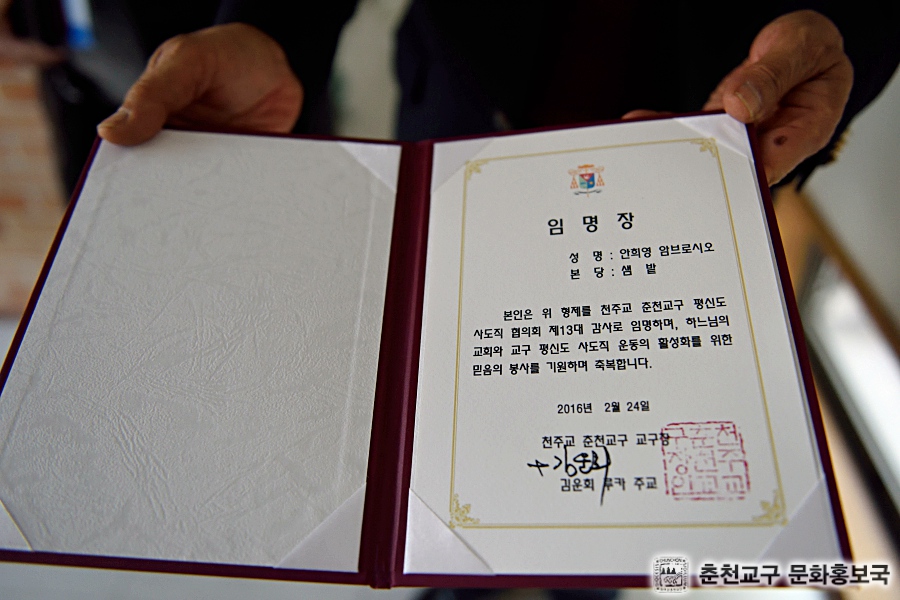 임 명 장
성 명 : 안희영 암브로시오
본 당 : 샘 밭
본인은 위 형제를 천주교 춘천교구 평신도
사도직 협의회 제13대 감사로 임명하며, 하느님의
교회와 교구 평신도 사도직 운동의 활성화를 위한
믿음의 봉사를 기원하며 축복합니다.
2016년 2월 24일
천주교 춘천교구 교구장
김운회 루카 주교
춘천교구 문화홍보국